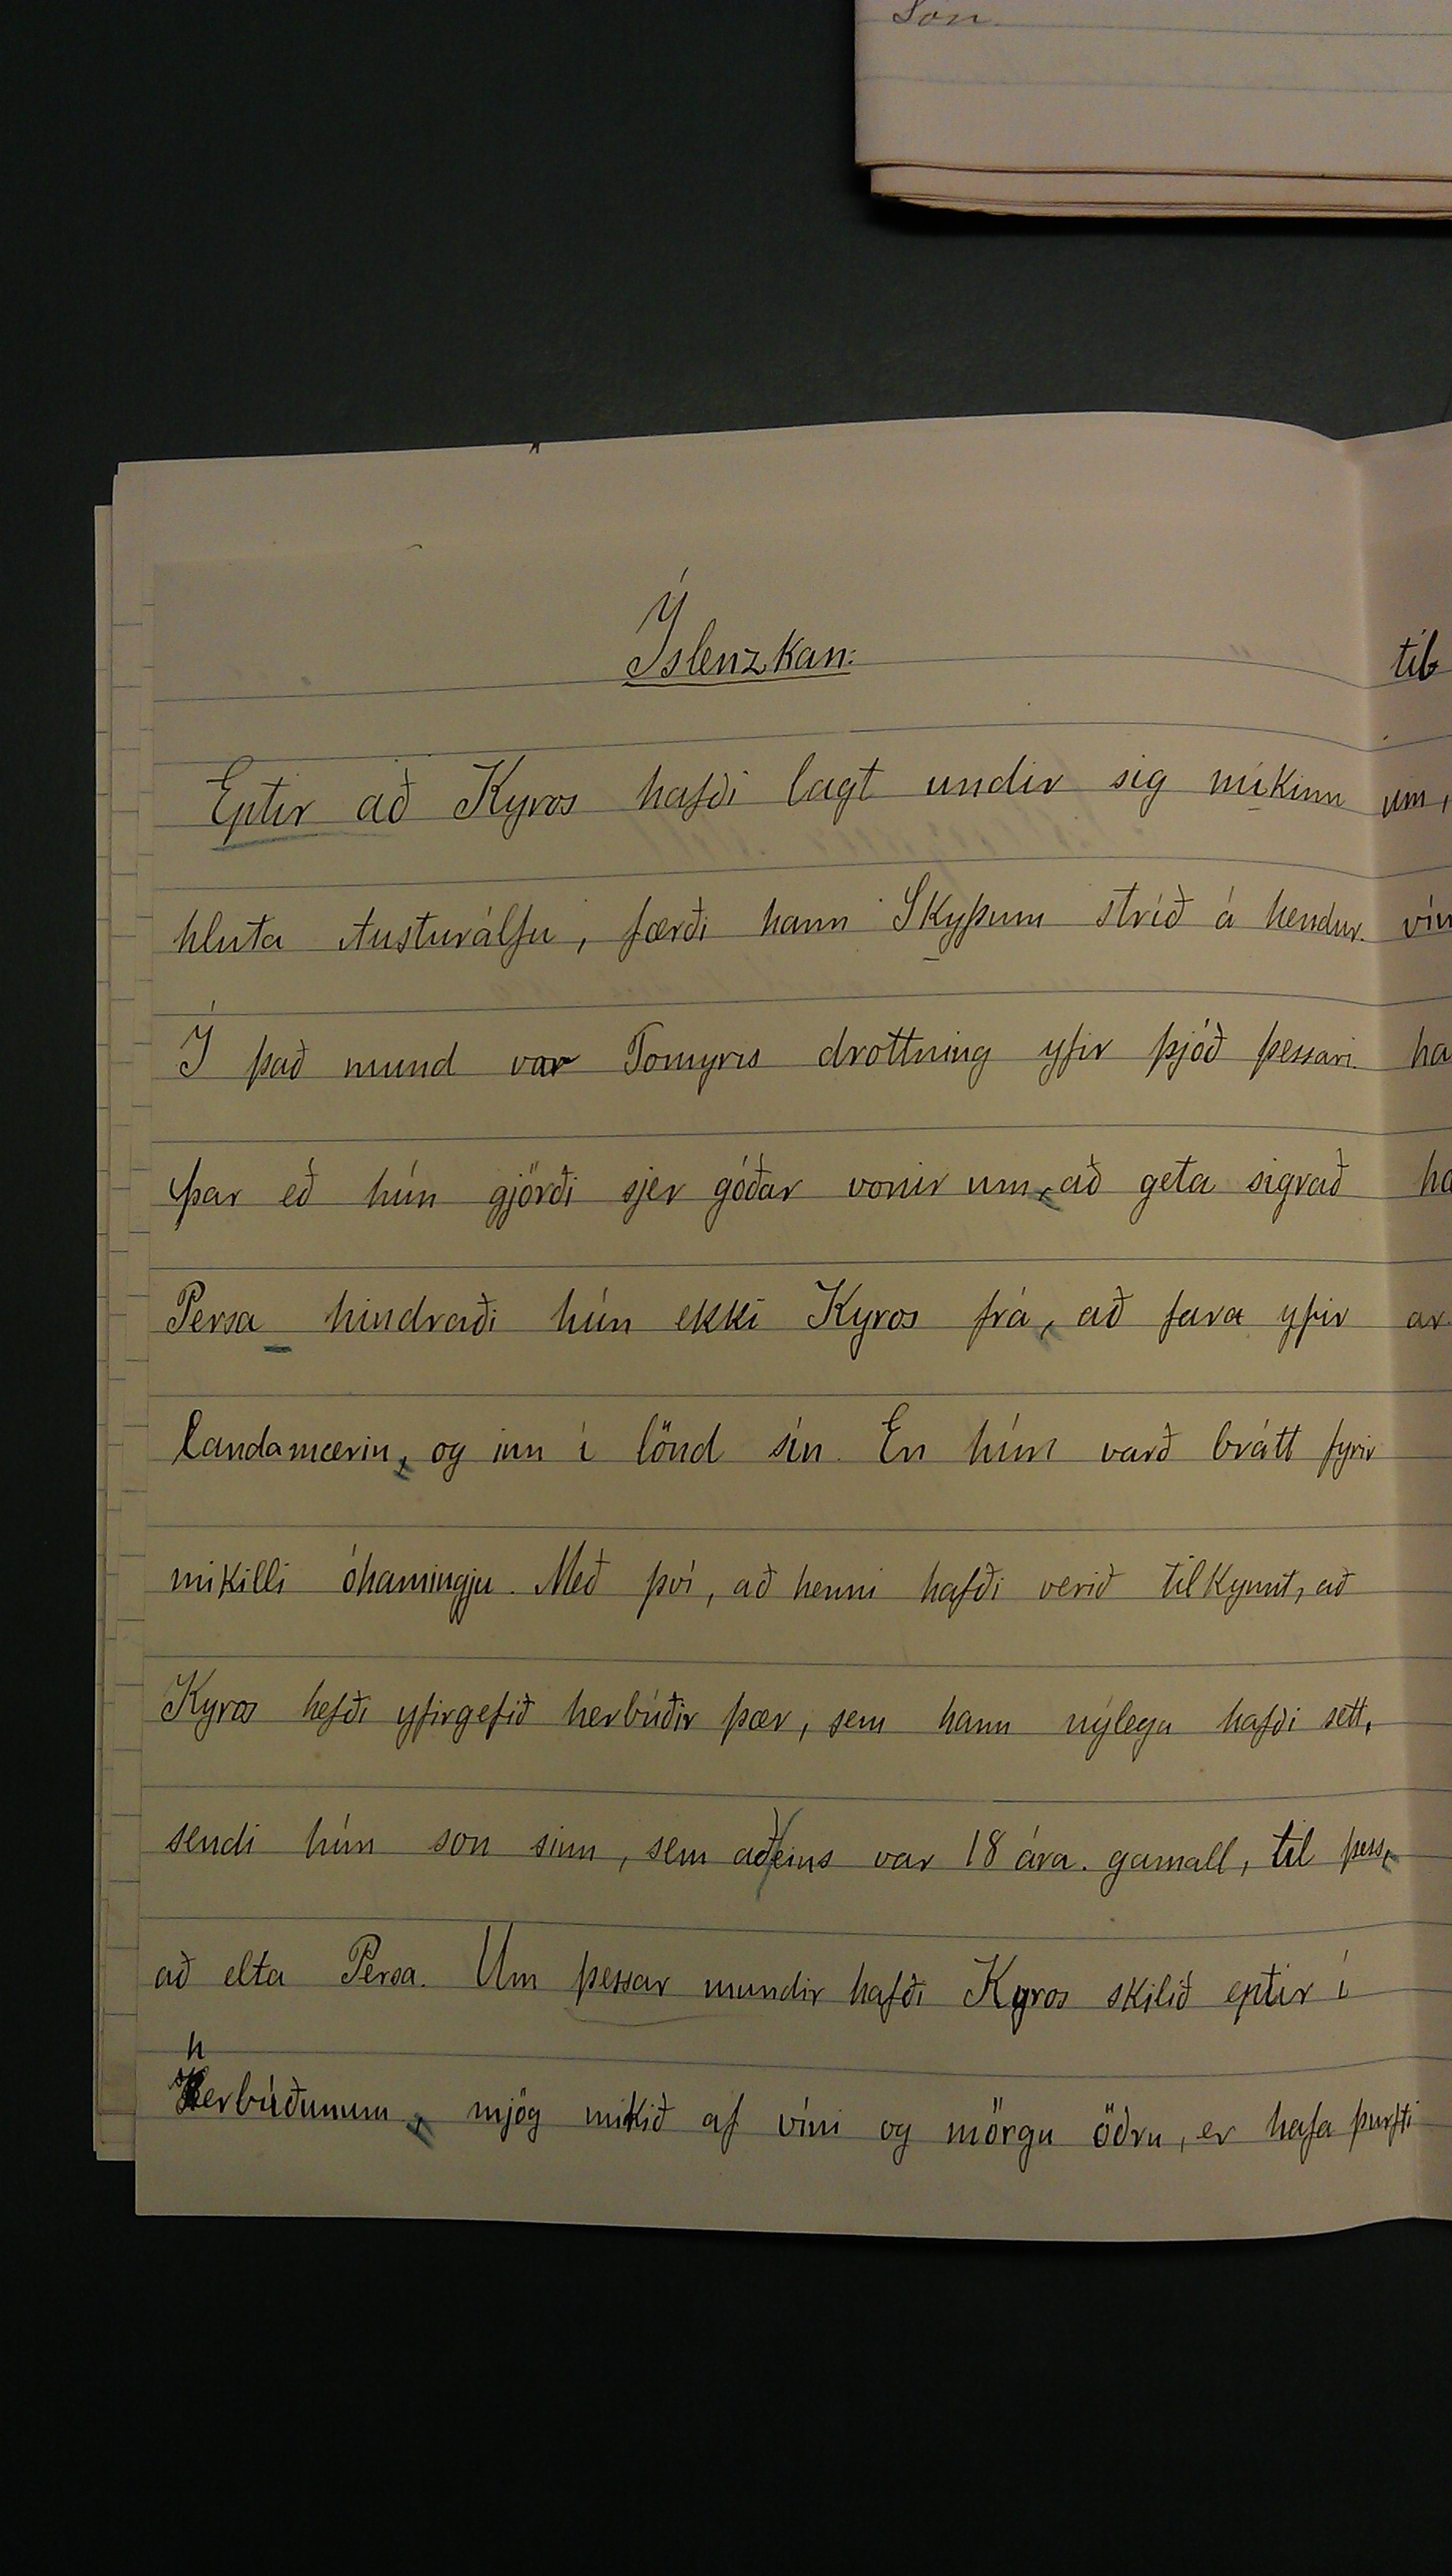 Son.
Íslenzkan:
Eptir að Kyros hafði lagt undir sig mikinn
hluta Austurálfu, færði hann Skyþum stríð á hendur.
Í það mund var Tomyris drottning yfir þjóð þessari.
Þar eð hún gjörði sjer góðar vonir um, að geta sigrað
Persa hindraði hún ekki Kyros frá, að fara yfir
landamærin, og inn í lönd sín. En hún varð brátt fyrir
mikilli óhamingju. Með því, að henni hafði verið tilkynnt, að
Kyros hefði yfirgefið herbúðir þær, sem hann nýlega hafði sett,
sendi hún son sinn, sem aðeins var 18 ára. gamall, til þess,
að elta Persa. Um þessar mundir hafði Kyros skilið eptir í
herbúðunum, mjög mikið af víni og mörgu öðru, er hafa þurfti
til
um,
vín
ha
ha
ar